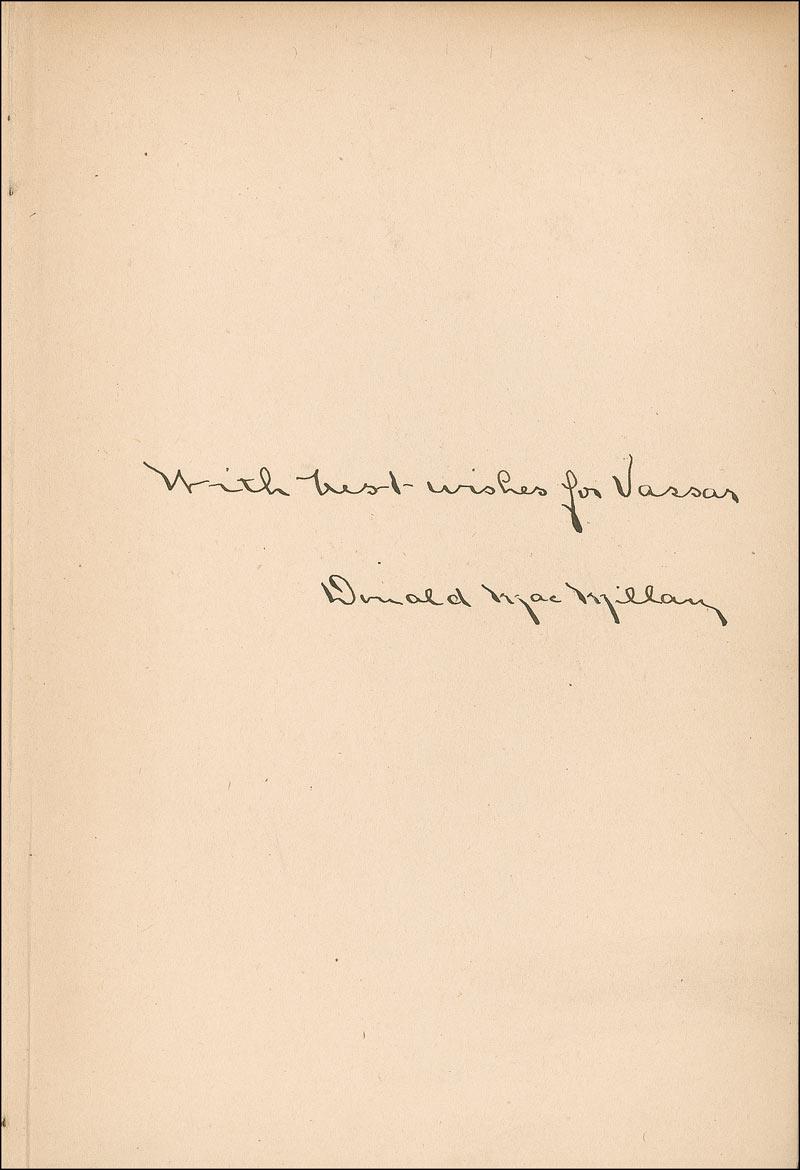 With best wishes for Vassar
Donald MacMillan